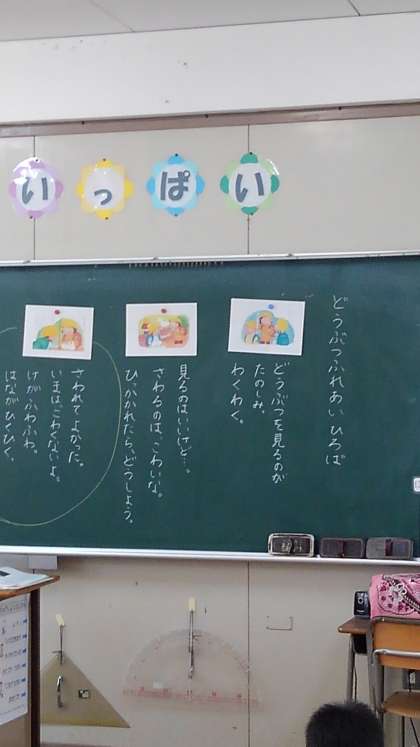 いっぱい
どうぶつふれあいひろば
どうぶつを見るのが
たのしみ。
わくわく。
見るのはいいけど…。
さわるのは、こわいな。
ひっかかれたら、どうしよう。
さわれてよかった。
いまはこわくないよ。
けがふわふわ。
はながひくひく。